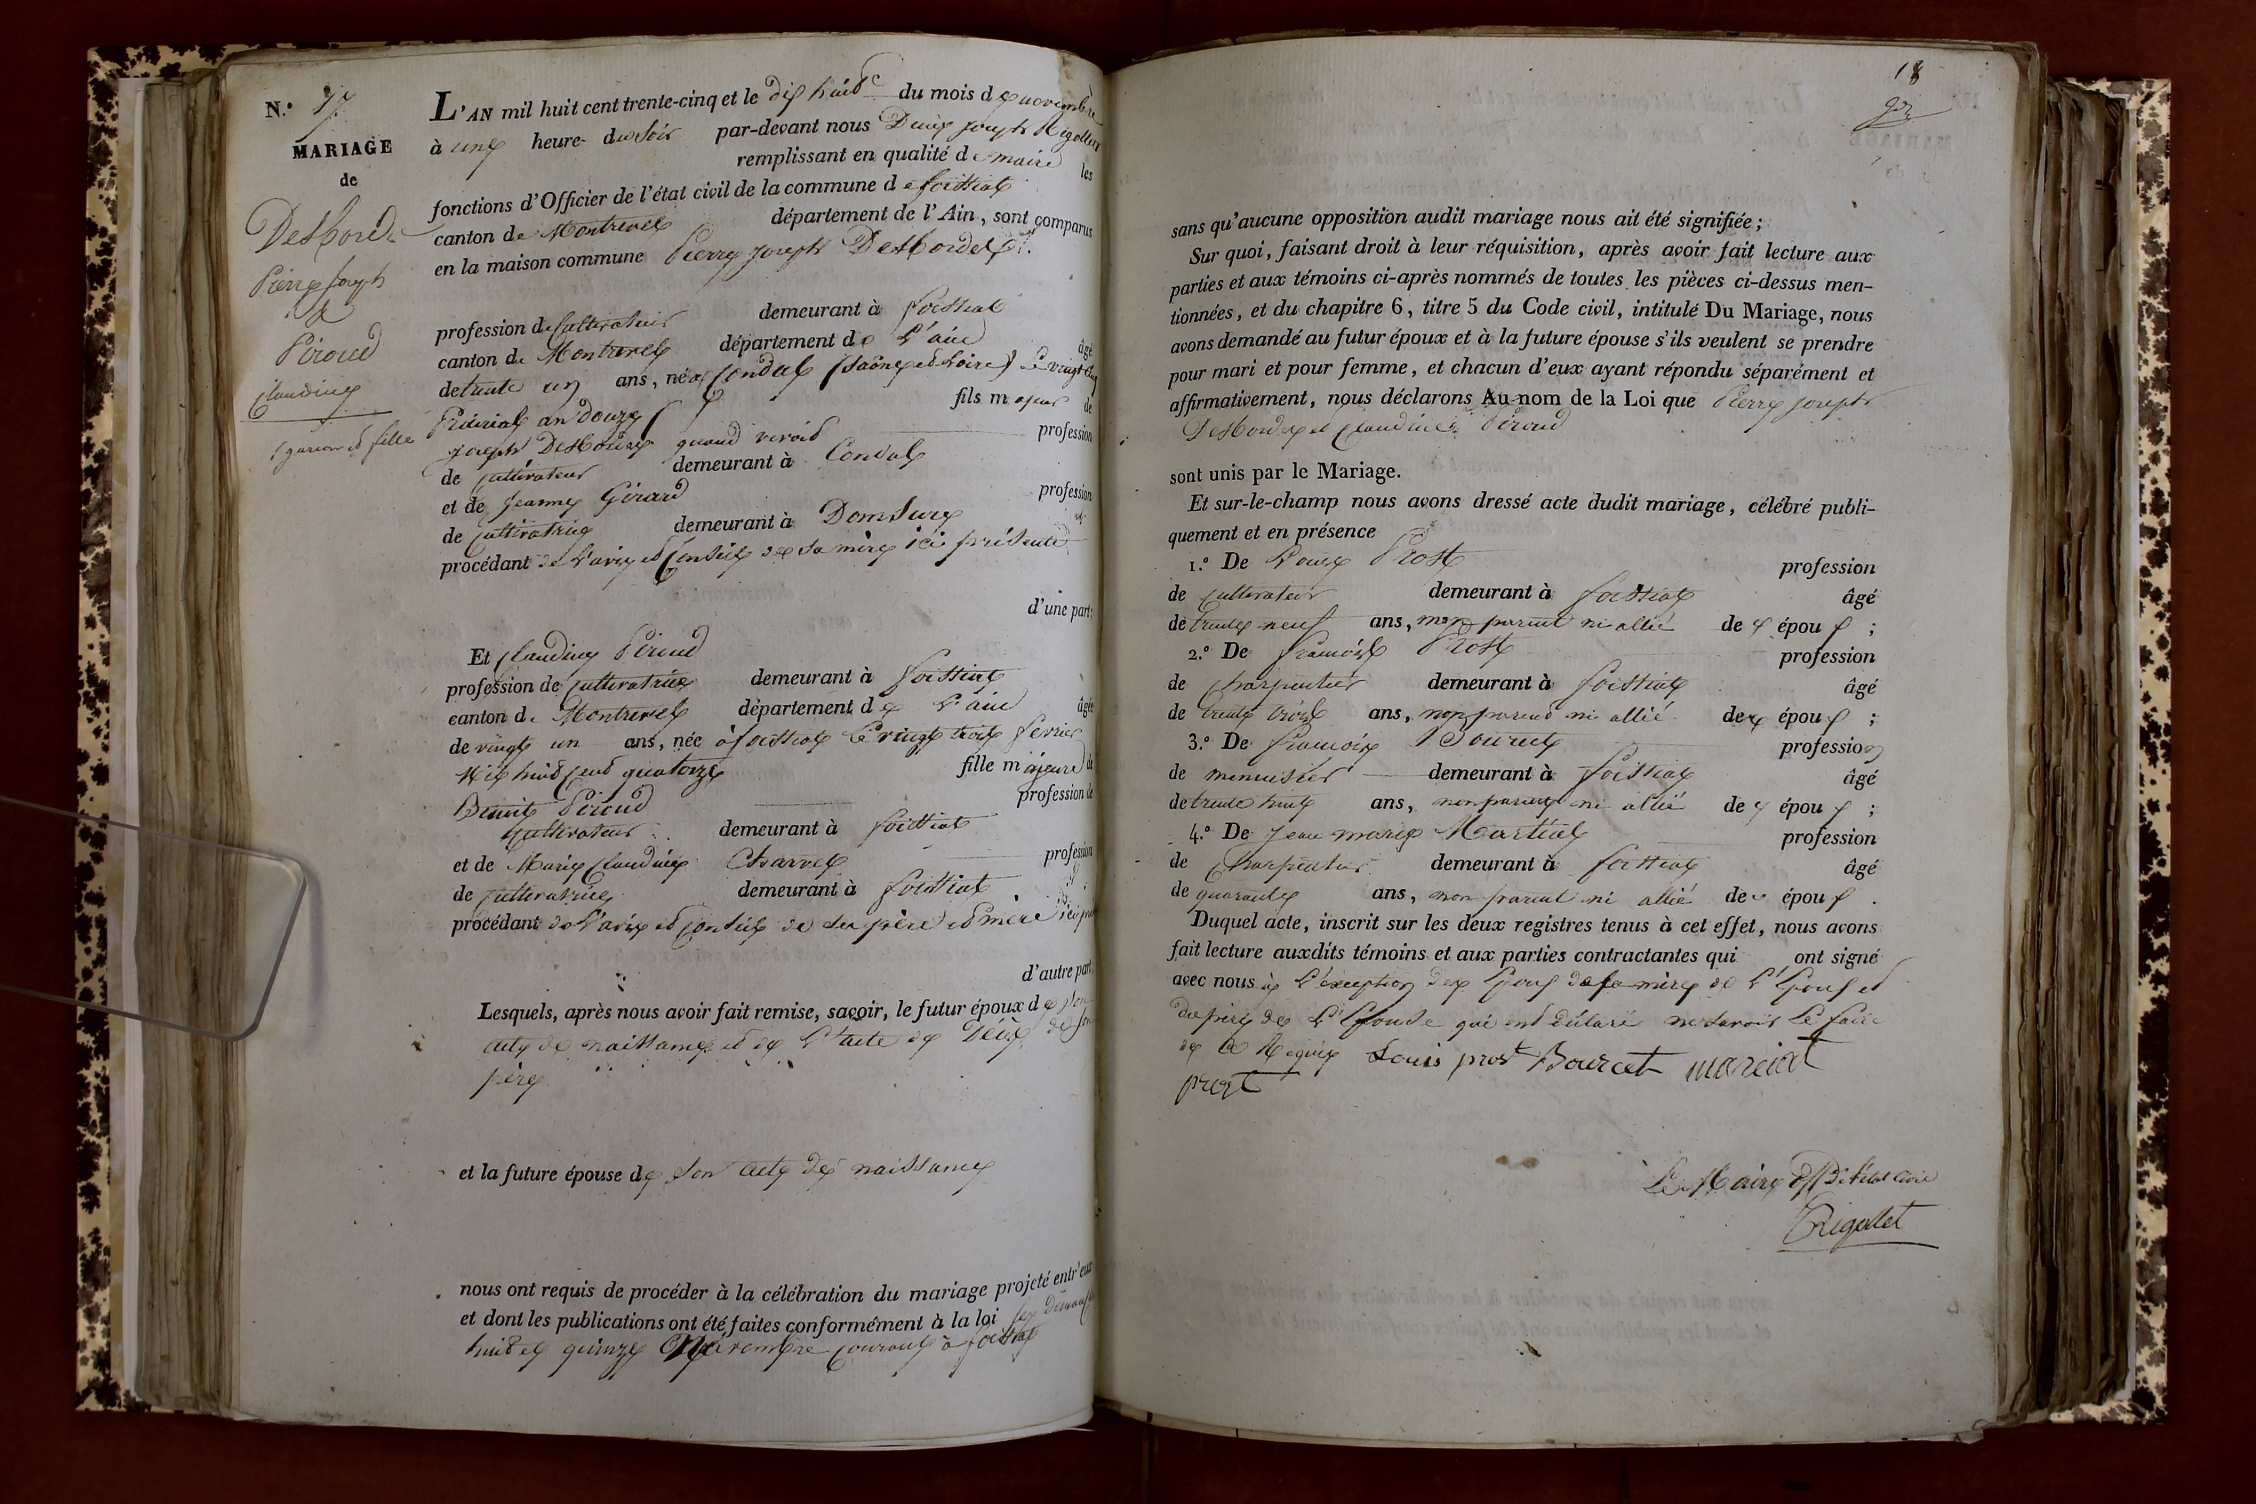 N.º 17
MARIAGE
de
Desborde
Pierre Joseph
&
Péroud
Claudine
1 garçon et fille
L'AN mil huit cent trente-cinq et le dix huit du mois de novembre
à une heure du soir par-devant nous Denis Joseph Rigollet
remplissant en qualité de maire les
fonctions d'Officier de l'état civil de la commune de foissiat
canton de Montrevel département de l'Ain, sont comparus
en la maison commune Pierre Joseph Desbordes
profession de Cultivateur demeurant à foissiat
canton de Montrevel département de L'ain âgé
de trente un ans, né à Condal (Saône et Loire) Le vingt cinq
Prairial an douze fils majeur de
Joseph Desbordes quand vivait profession
de Cultivateur demeurant à Condal
et de Jeanne Girard profession
de Cultivatrice demeurant à Domsure
procédant de L'avis et Conseil de sa mère ici présente
d'une part;
Et Claudine Péroud
profession de Cultivatrice demeurant à foissiat
canton de Montrevel département de L'ain âgée
de vingt un ans, née à foissiat Le vingt trois fevrier
Mil huit Cent quatorze fille majeure de
Benoit Péroud profession de
Cultivateur demeurant à foissiat
et de Marie Claudine Charvet profession
de Cultivatrice demeurant à foissiat
procédant de L'avis et Conseil de ses père et mère ici
d'autre part.
Lesquels, après nous avoir fait remise, savoir, le futur époux de son
acte de naissance et de L'acte de Décès de son
père
et la future épouse de son acte de naissance
nous ont requis de procéder à la célébration du mariage projeté entr'eux
et dont les publications ont été faites conformément à la loi les Dimanches
huit et quinze Novembre Courant à foissiat
18
sans qu'aucune opposition audit mariage nous ait été signifiée;
Sur quoi, faisant droit à leur réquisition, après avoir fait lecture aux
parties et aux témoins ci-après nommés de toutes les pièces ci-dessus men-
tionnées, et du chapitre 6, titre 5 du Code civil, intitulé Du Mariage, nous
avons demandé au futur époux et à la future épouse s'ils veulent se prendre
pour mari et pour femme, et chacun d'eux ayant répondu séparément et
affirmativement, nous déclarons Au nom de la Loi que Pierre Joseph
Desbordes et Claudine Péroud
sont unis par le Mariage.
Et sur-le-champ nous avons dressé acte dudit mariage, célébré publi-
quement et en présence
1.º De Louis Prost profession
de Cultivateur demeurant à foissiat âgé
de trente neuf ans, non parent ni allié de s époux ;
2.º De françois Prost profession
de Charpentier demeurant à foissiat âgé
de trente trois ans, non parent ni allié des époux ;
3.º De françois Bourcet profession
de menuisier demeurant à foissiat âgé
de trente huit ans, non parent ni allié de s époux ;
4.º De Jean marie Martial profession
de Charpentier demeurant à foissiat âgé
de quarante ans, non parent ni allié des époux .
Duquel acte, inscrit sur les deux registres tenus à cet effet, nous avons
fait lecture auxdits témoins et aux parties contractantes qui ont signé
avec nous à L'éxception des Epoux de la mère de L'Epoux et
du père de L'Epouse qui ont déclaré ne savoir Le faire
de ce Requis Louis prost Bourcet marcial
prost
Le Maire off de l'état civil
Rigollet